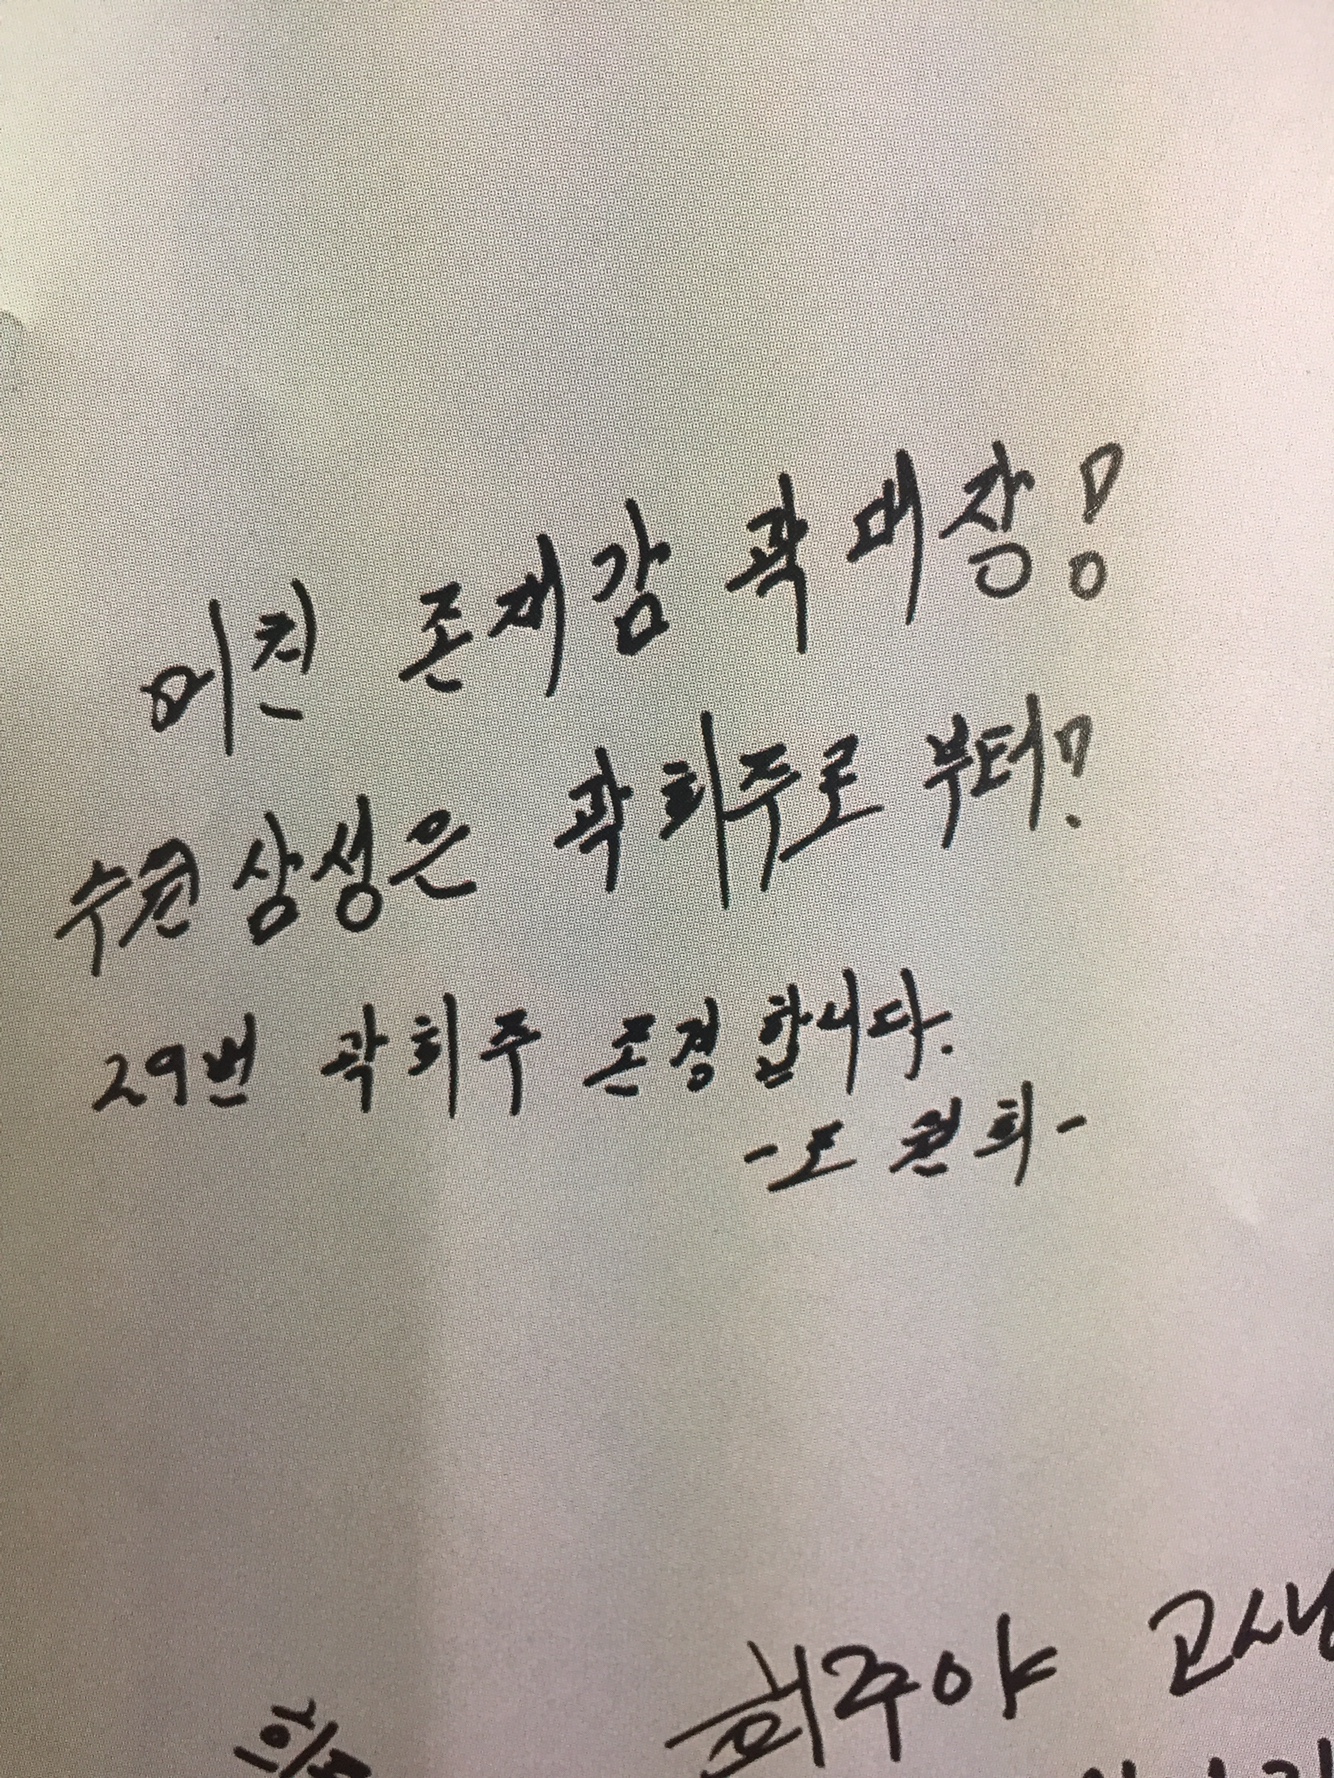 미친 존재감 곽대장!
수원삼성은 곽희주로 부터!
29번 곽희주 존경합니다.
-노권희-
희주야 고생